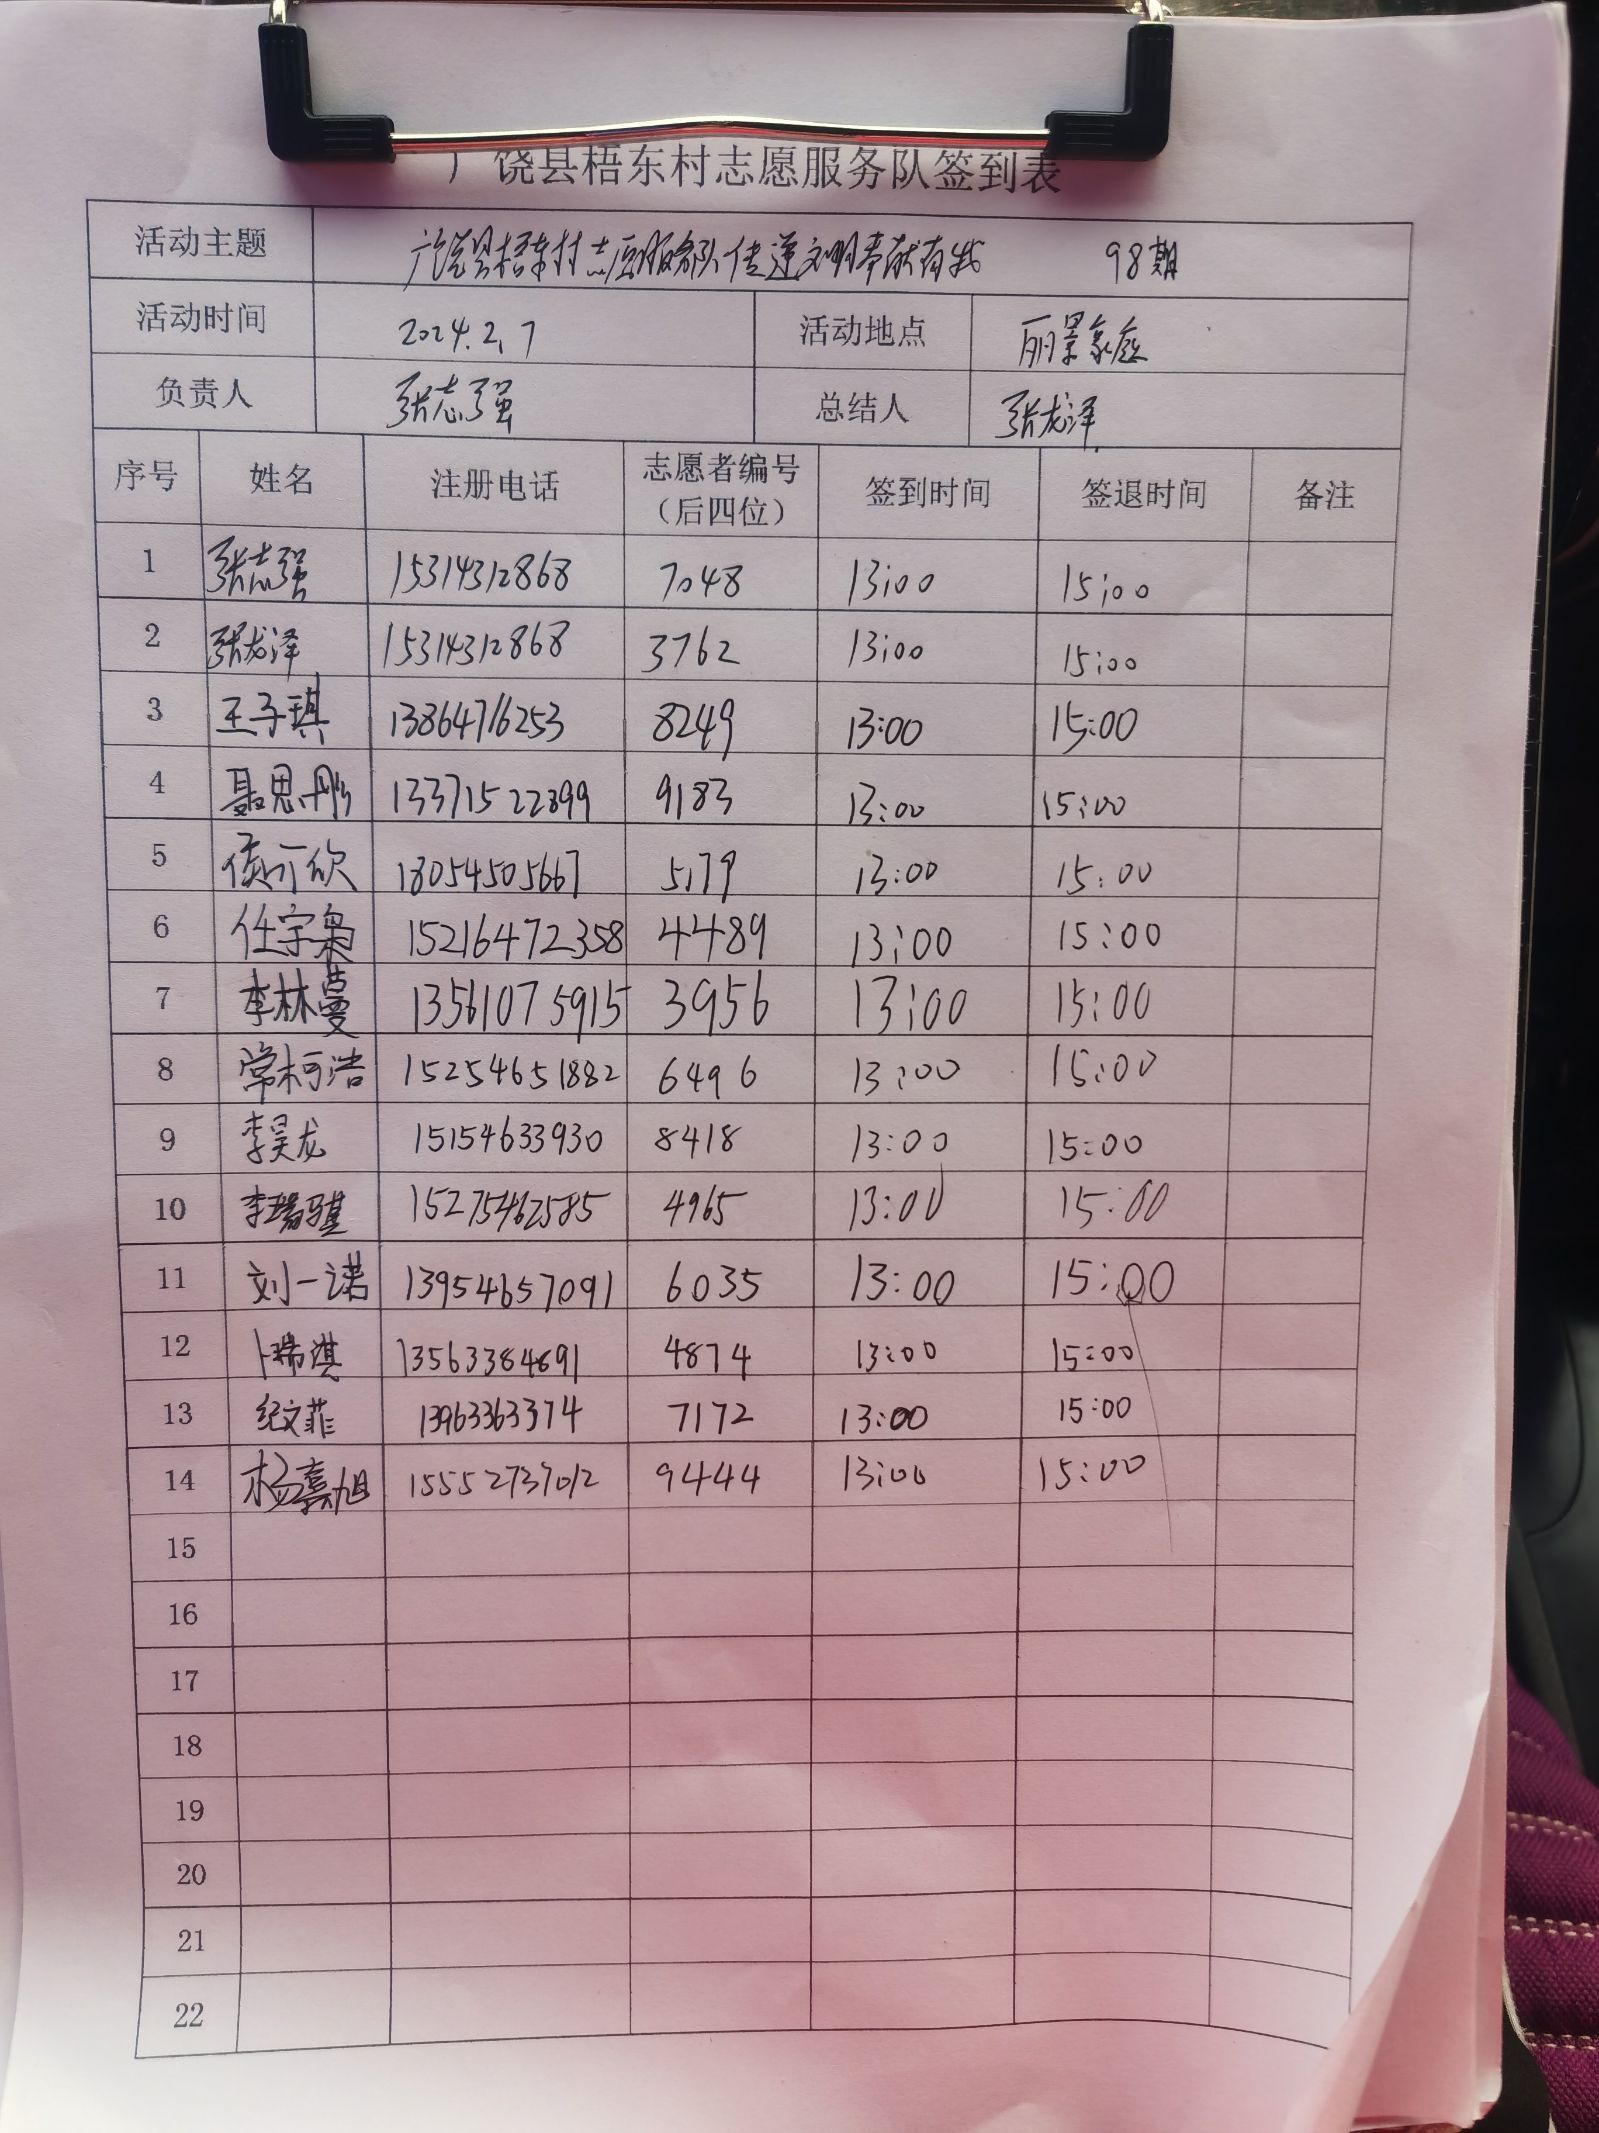 广饶县梧东村志愿服务队签到表
活动主题 广饶县梧东村志愿服务队传递文明奉献有我 98期
活动时间 2024.2.7 活动地点 丽景家庭
负责人 张志强 总结人 张龙泽
序号 姓名 注册电话 志愿者编号 签到时间 签退时间 备注
(后四位)
1 张志强 15314312868 7048 13:00 15:00
2 张龙泽 15314312868 3762 13:00 15:00
3 王子琪 13864716253 8249 13:00 15:00
4 聂思彤 13371522899 9183 13:00 15:00
5 欣 18054505667 5179 13:00 15:00
6 任宇枭 15216472358 4489 13:00 15:00
7 李林蔓 13561075915 3956 13:00 15:00
8 常柯浩 15254651882 6496 13:00 15:00
9 李昊龙 15154633930 8418 13:00 15:00
10 李瑞骐 15275462585 4965 13:00 15:00
11 刘一诺 13954657091 6035 13:00 15:00
12 卜瑞淇 13563384691 4874 13:00 15:00
13 纪文菲 13963363374 7172 13:00 15:00
14 杨嘉旭 15552737012 9444 13:00 15:00
15
16
17
18
19
20
21
22